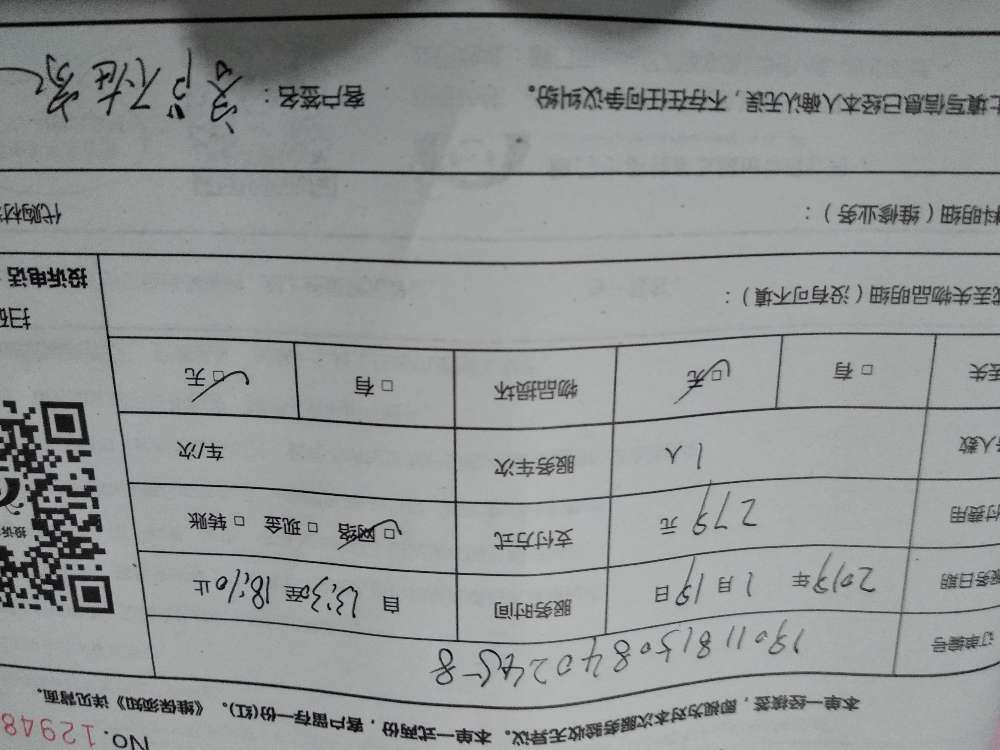 NO.12948
本单一经核签，即视为对本次服务验收无异议。本单一式两份，客户留存一份(红)。《维保须知》详见背面。
订单编号
服务日期 2019年 1月19日 服务时间 自 13:30 至 18:10 止
付费用 279 元 支付方式 □ 网络 □ 现金 □ 转账
人数 1 人 服务车次 车/次
丢失 □ 有 □ 无 物品损坏 □ 有 □ 无
投诉
扫码
投诉电话
或丢失物品明细（没有可不填）：
料明细（维修业务）： 代购材
上填写信息已经本人确认无误，不存在任何争议纠纷。 客户签名：客户不在家